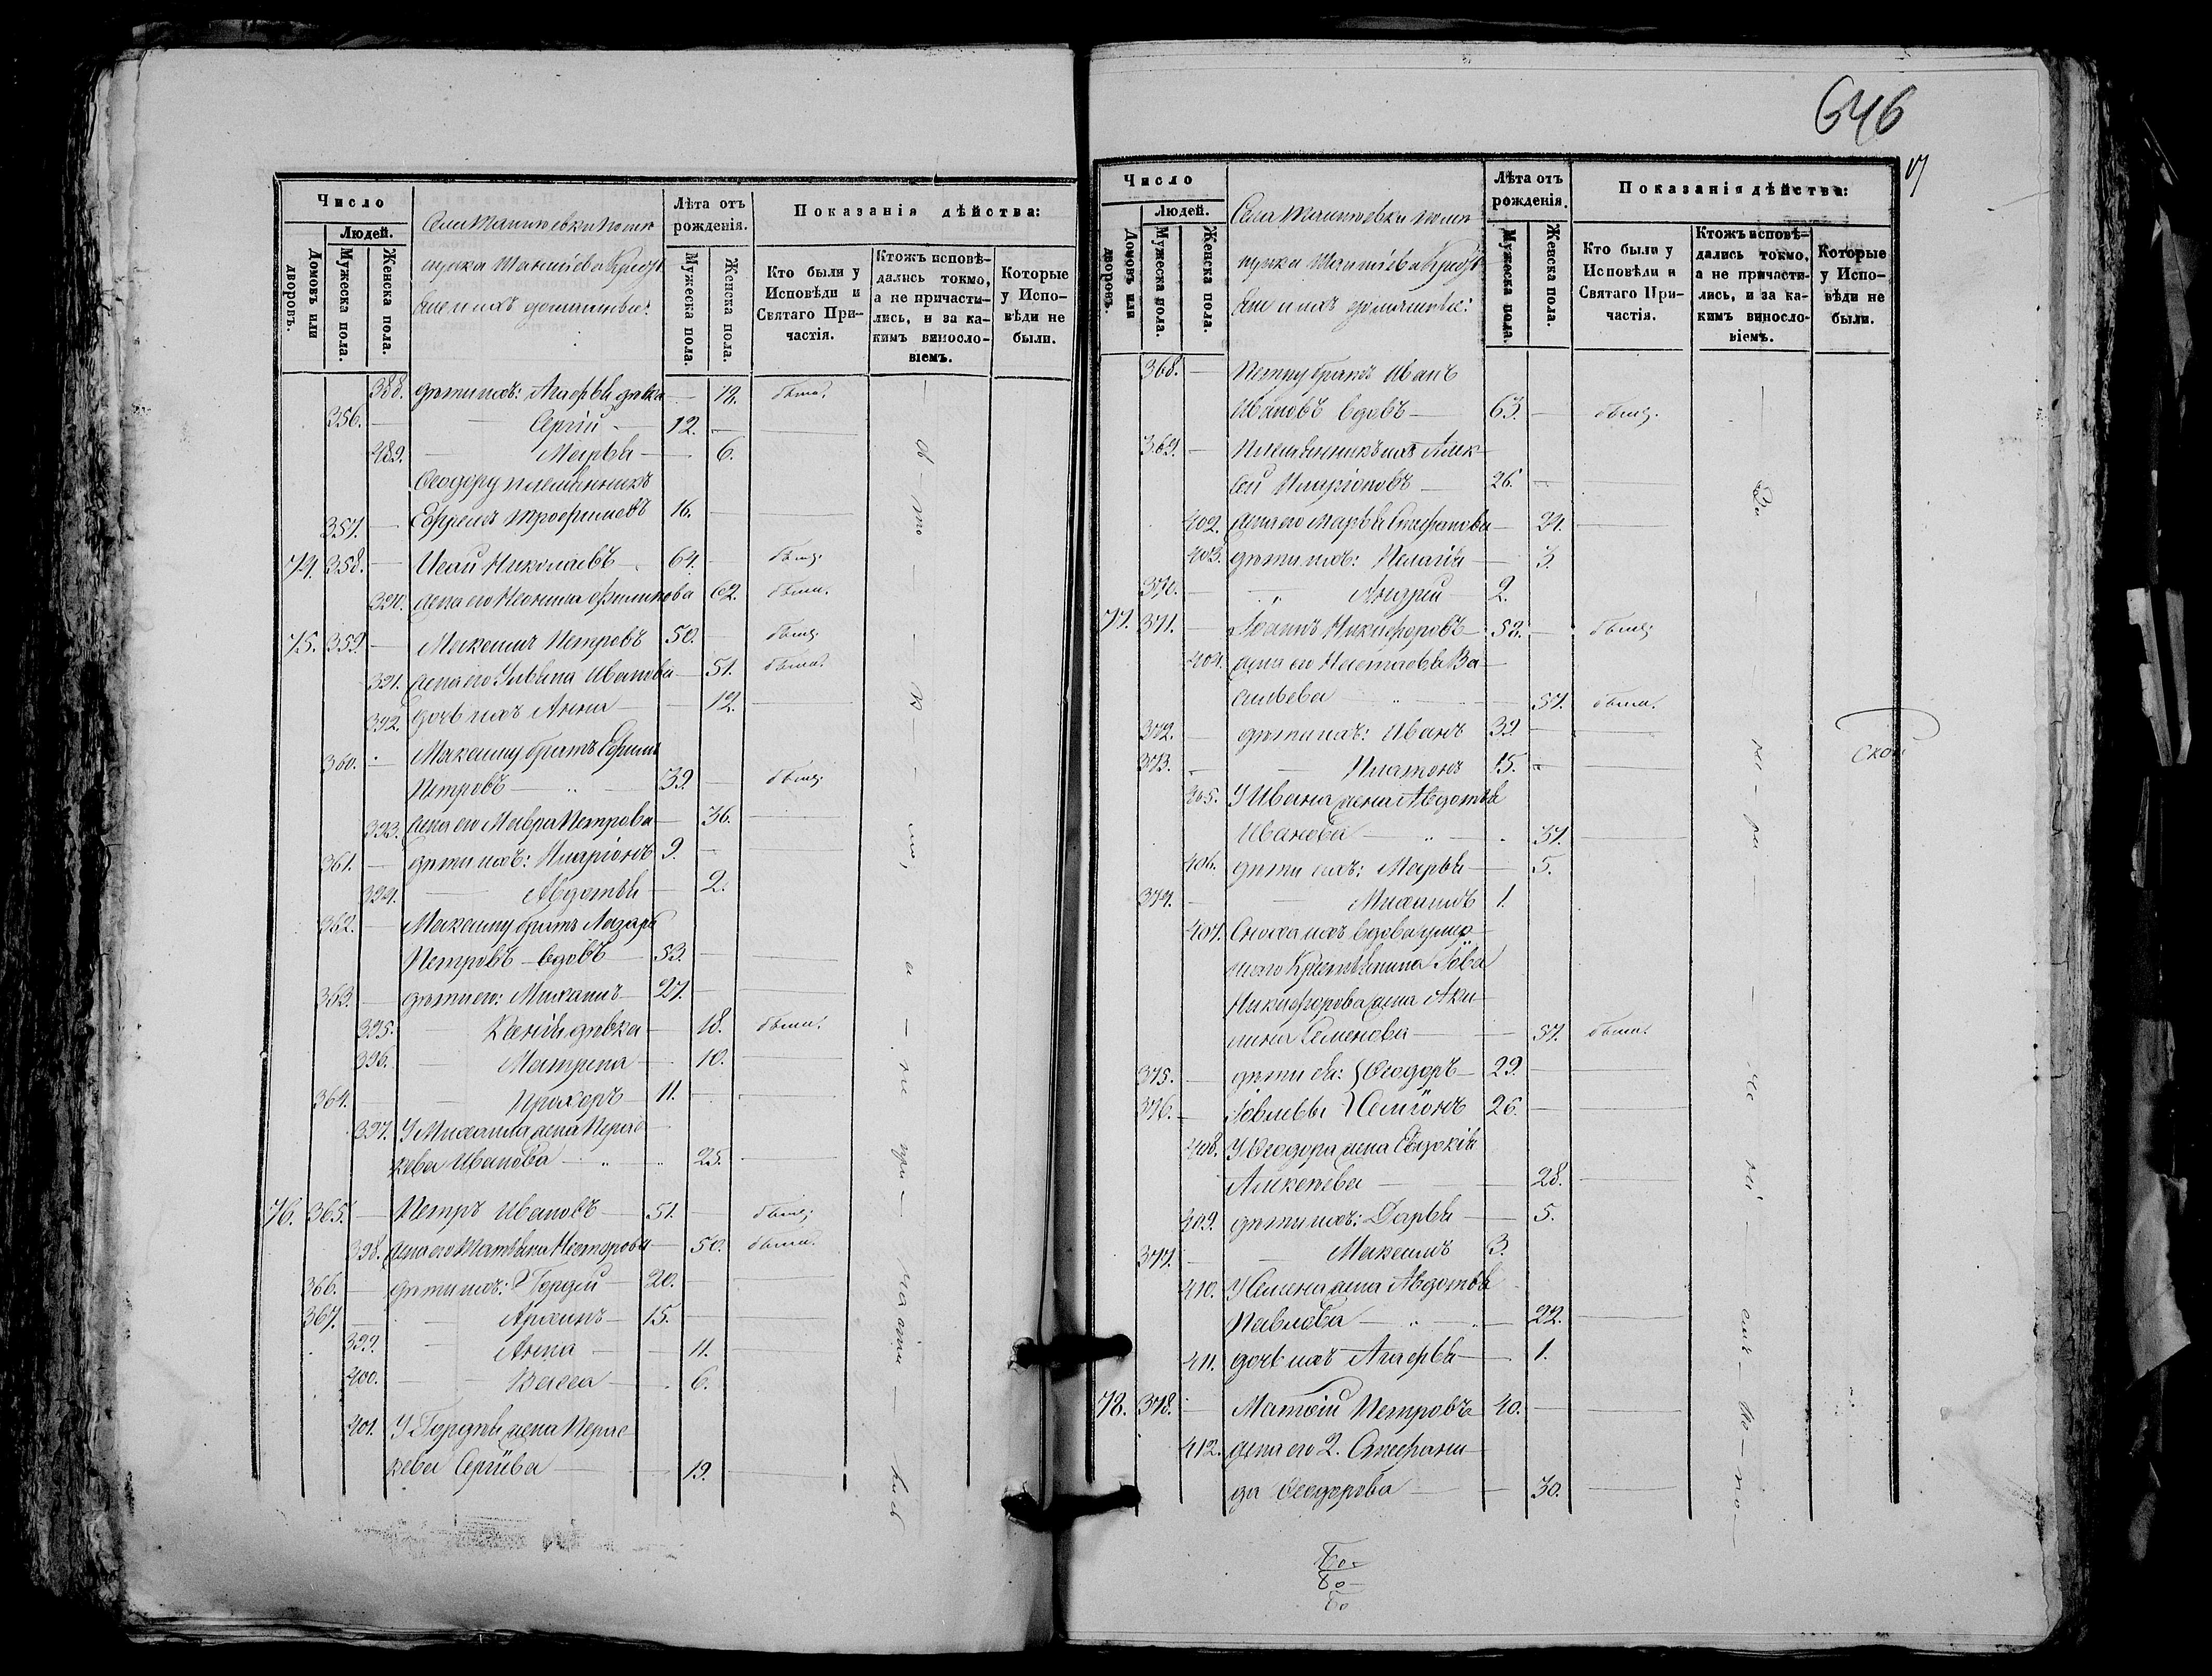 Число
Людей.
Домовъ или дворовъ.
Мужеска пола.
Женска пола.
Лѣта отъ рожденія.
Мужеска пола.
Женска пола.
Показанія дѣйства:
Кто были у Исповѣди и Святаго Причастія.
Ктожъ исповѣдались токмо, а не причастились, и за какимъ винословіемъ.
Которые у Исповѣди не были.
388. дѣти ихъ: дѣвка — 18. была.
356. — Сергій — 12. —
489. — Марѳа — 6.
Ѳеодору племянникъ
357. — Ефремъ Трофимовъ 16. —
74. 358. — Исай Николаевъ — 64. — былъ.
390. жена его Неонила Филипова 62. была.
75. 359. — Максимъ Петровъ 50. — былъ.
391. жена его Ульяна Иванова — 51. была.
392. дочь ихъ Анна — 12.
360. — Максиму братъ Ефимъ
Петровъ — 39. — былъ.
393. жена его Мавра Петрова — 36.
361. — дѣти ихъ: Иларіонъ 9. —
394. — Авдотья — 2.
362. — Максиму братъ Лазарь
Петровъ — вдовъ — 53. —
363. — дѣти его: Михаилъ — 27. —
395. — Ксенія дѣвка — 18. была.
396. — Матрена — 10.
364. — Прохоръ — 11. —
397. У Михаила жена Параскева Иванова — 25.
76. 365. — Петръ Ивановъ — 51. — былъ.
398. жена его Татьяна Несторова — 50. была.
366. — дѣти ихъ: Гордѣй — 20. —
367. — Архипъ — 15. —
399. — Анна — 11.
400. — Васса — 6.
401. У Гордѣя жена Парас-
кева Сергіева — 19.
646
17
Число
Людей.
Домовъ или дворовъ.
Мужеска пола.
Женска пола.
Лѣта отъ рожденія.
Мужеска пола.
Женска пола.
Показанія дѣйства:
Кто были у Исповѣди и Святаго Причастія.
Ктожъ исповѣдались токмо, а не причастились, и за какимъ винословіемъ.
Которые у Исповѣди не были.
368. — Петру братъ Иванъ
Ивановъ вдовъ — 63. — былъ.
369. — Племянникъ ихъ Алек-
сей Иларіоновъ — 26. —
402. жена его Марѳа Стефанова — 24.
403. дѣти ихъ: Пелагія — 3.
370. — Андрей — 2.
77. 371. — Іоаннъ Никифоровъ — 58. — былъ.
404. жена его Настасья Ва-
сильева — 57. была.
372. — дѣти ихъ: Иванъ 39. —
373. — Платонъ 15. —
405. У Ивана жена Авдотья
Иванова — 37.
406. дѣти ихъ: Марья — 5.
374. — Михаилъ 1.
407. Сноха ихъ вдова умер-
шаго Крестьянина Іова
Никифорова жена Аку-
лина Семенова — 57. была.
375. — дѣти ея: Ѳеодоръ — 29. —
376. — Іовлевы Семіонъ 26. —
408. У Ѳеодора жена Евдокія
Алексѣева — 28.
409. дѣти ихъ: Дарья — 5.
377. — Максимъ 3.
410. У Семена жена Авдотья
Павлова — 22.
411. дочь ихъ — 1.
78. 378. — Матѳій Петровъ 40. —
412. жена его 2. Стефани-
да Ѳеодорова — 30.